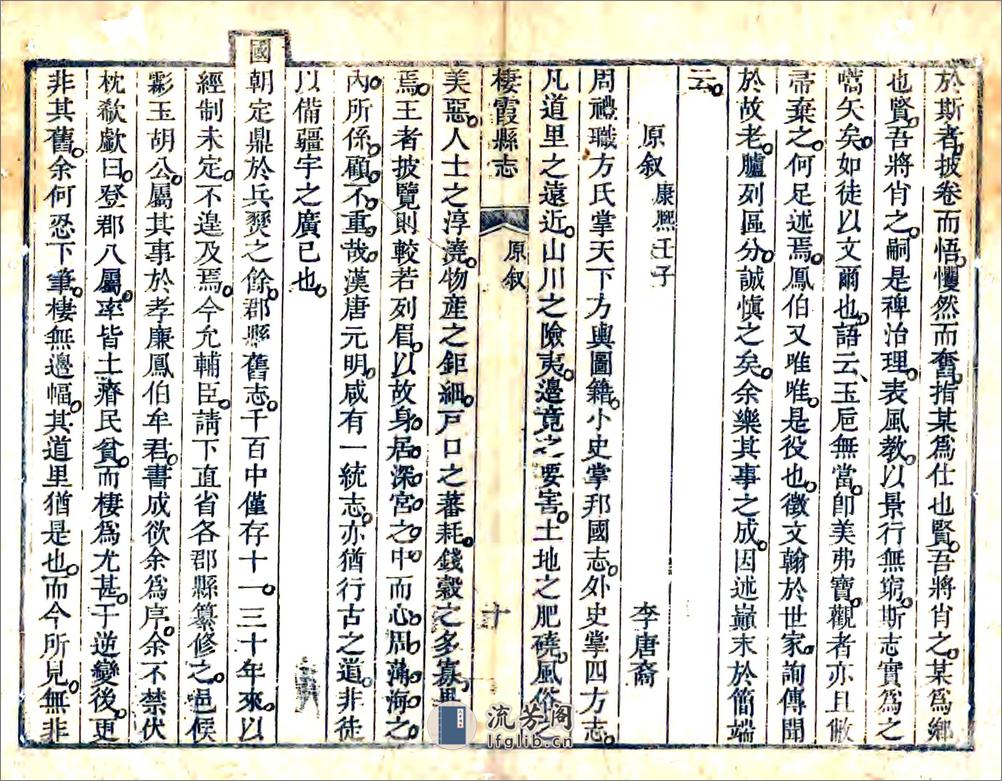 於斯者披卷而悟戄然而奮指某爲仕也賢吾將肖之某爲鄉
也賢吾將肖之嗣是裨治理表風教以景行無窮斯志實爲之
嚆矢矣如徒以文爾也語云玉巵無當卽美弗寶觀者亦且敝
帚棄之何足述焉鳳伯又唯唯是役也徵文翰於世家詢傳聞
於故老臚列區分誠慎之矣余樂其事之成因述巔末於簡端
云
原叙 康熙壬子 李唐裔
周禮職方氏掌天下方輿圖籍小史掌邦國志外史掌四方志
凡道里之遠近山川之險夷邊竟之要害土地之肥磽風俗之
棲霞縣志 原叙 十
美惡人士之淳澆物産之鉅細戸口之蕃耗錢穀之多寡畢
焉王者披覽則較若列眉以故身居深宮之中而心周薄海之
內所係顧不重哉漢唐元明咸有一統志亦猶行古之道非徒
以備疆宇之廣已也
國朝定鼎於兵燹之餘郡縣舊志千百中僅存十一三十年來以
經制未定不遑及焉今允輔臣請下直省各郡縣纂修之邑侯
彩玉胡公屬其事於孝廉鳳伯牟君書成欲余爲序余不禁伏
枕欷歔曰登郡八屬率皆土瘠民貧而棲爲尤甚于逆變後更
非其舊余何忍下筆棲無邊幅其道里猶是也而今所見無非
流芳閣
lfglib.cn